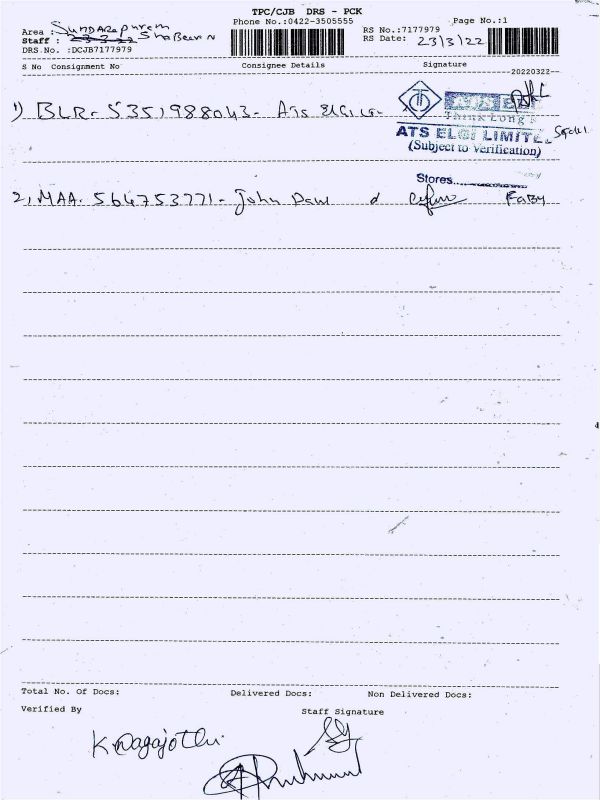 TPC/CJB DRS - PCK
Phone No.:0422-3505555 Page No.:1
Area : Sundarapuram RS No.:7177979
Staff : RS Date: 23/3/22
DRS.No. :DCJB7177979
S No Consignment No Consignee Details Signature
20220322
1) BLR - 5351988043 - ATS ELGI
Think Long's
ATS ELGI LIMITED
(Subject to Verification)
Stores
2, MAA. 564753771 - John
Total No. Of Docs: Delivered Docs: Non Delivered Docs:
Verified By Staff Signature
K. Nagajothi